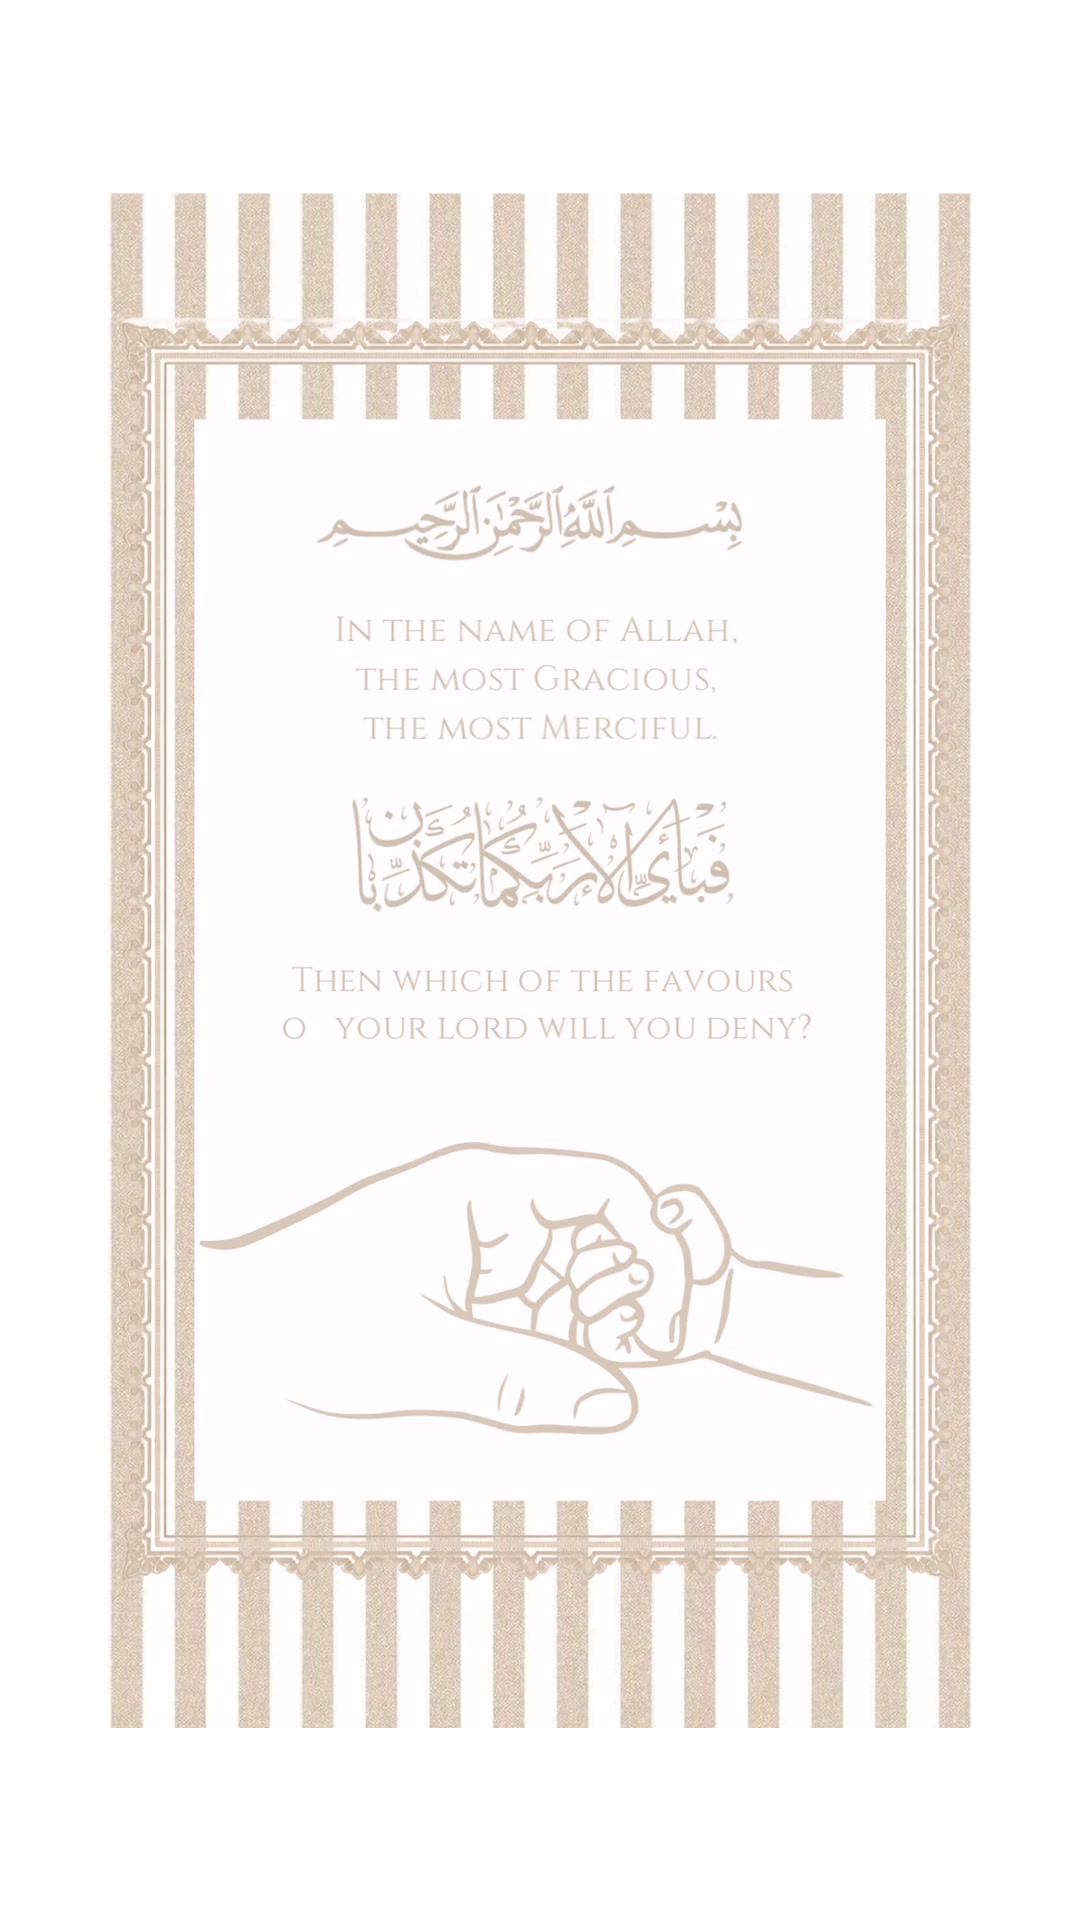 بِسْمِ اللَّهِ الرَّحْمَٰنِ الرَّحِيمِ
In the name of Allah,
the most Gracious,
the most Merciful.
فَبِأَيِّ آلَاءِ رَبِّكُمَا تُكَذِّبَانِ
Then which of the favours
o your lord will you deny?